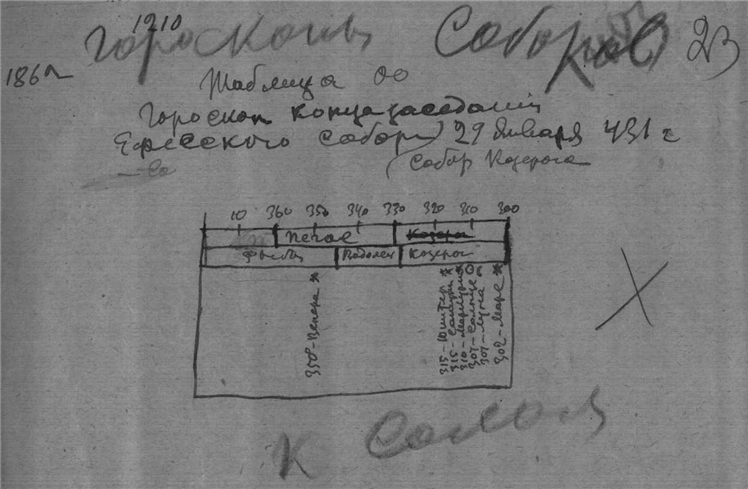 1210
Гороскопы Соборов 23
186а
Таблица 00
Гороскоп конца заседаний
Ефесского Собора 29 Января 431 г
(Собор Козерога
10 360 350 340 330 320 310 300
Пегас Козерог
Рыбы Водолей Козерог
350-Венера
315-Юпитер
315-Сатурн
310-Меркурий
307-Солнце
307-Луна
302-Марс
К